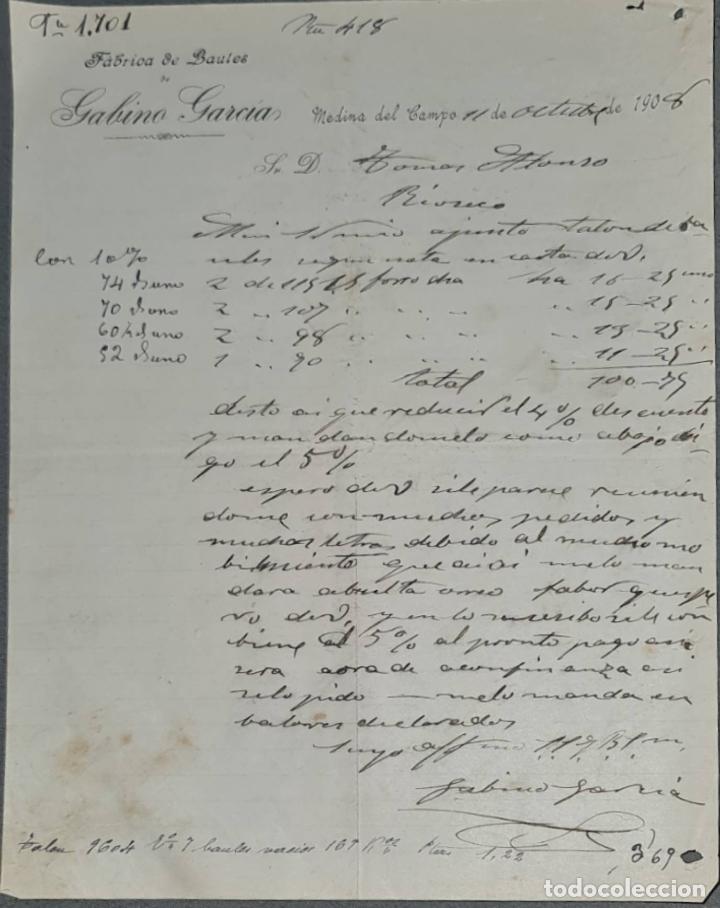 Fa 1.701
Nu 418
Fábrica de Baules
de
Gabino García
Medina del Campo 11 de octubre de 1908
Sr. D. Tomas Alonso
Rioseco
Muy mio ajunto talon de ba
ules segun nota en casta de V.
Con 10%
74 2 de 115 forro dha ha 16-25 uno
70 2 .. 107 .. .. .. .. 15-25 ..
60 2 .. 98 .. .. .. .. 13-25 ..
52 1 .. 90 .. .. .. .. 11-25 ..
Total 100-75
desto ai que reducir el 4% descuento
y mandandomelo como abajo di
go el 5%
espero de V si le parece reunien
dome con muchos pedidos y
muchas letras debido al mucho mo
bimiento que aiai melo man
dara abuelta correo fabor que espe
ro de V, y en lo sucesibo si le con
biene el 5% al pronto pago asi
sera aora de aconfinanza asi
se lo pido — melo manda en
balores declarados
Suyo affmo
Gabino García
Talon 9604 7 baules vacios 167 K Ptas 1,22
3,69
todocoleccion